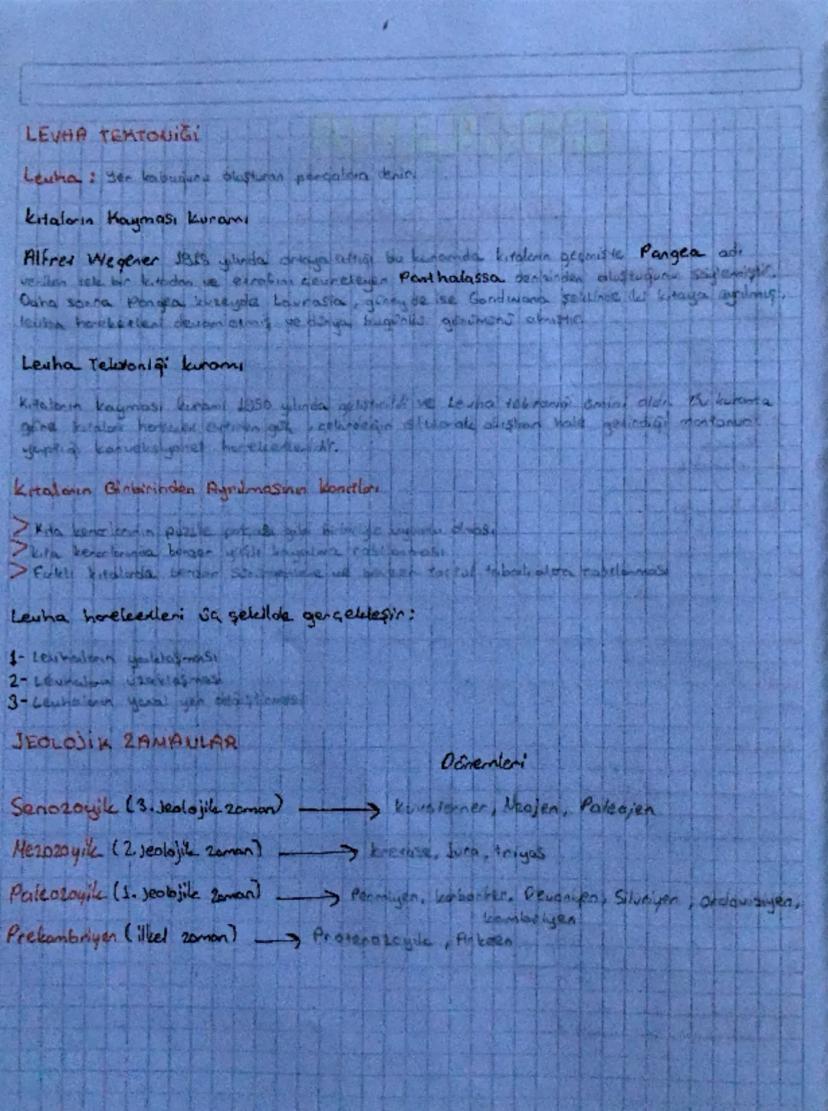 LEVHA TEKTONİĞİ
Levha : Yer kabuğunu oluşturan parçalara denir.
Kıtaların Kayması Kuramı
Alfred Wegener yılında ortaya attığı bu kuramda kıtaların geçmişte Pangea adı
verilen tek bir kıtadan ve etrafını çevreleyen Panthalassa denizinden oluştuğunu söylemiştir.
Daha sonra Pangea kuzeyde Lavrasia, güneyde ise Gondwana şeklinde iki kıtaya ayrılmış,
levha hareketleri devam etmiş ve dünya bugünkü görünümü almıştır.
Levha Tektoniği kuramı
Kıtaların kayması kuramı 1950 yılında geliştirildi ve Levha tektoniği ismini aldı. Bu kurama
göre kıtaları hareket ettiren güç, halde mantonun
yaptığı konveksiyonel hareketleridir.
Kıtaların Birbirinden Ayrılmasının kanıtları
> Kıta kenarlarının puzzle parçası gibi birbirine uyumlu olması
> kıta kenarlarında benzer yaşlı kayaçlara rastlanması
> Farklı kıtalarda benzer ve benzer fosil rastlanması
Levha hareketleri üç şekilde gerçekleşir:
1- Levhaların yaklaşması
2- Levhaların uzaklaşması
3- Levhaların yanal yer değiştirmesi
JEOLOJİK ZAMANLAR
Dönemleri
Senozoyik (3. Jeolojik zaman) → Kuvaterner, Neojen, Paleojen
Mezozoyik (2. Jeolojik zaman) → kretase, Jura, triyas
Paleozoyik (1. Jeolojik zaman) → Permiyen, karbonifer, Devoniyen, Siluriyen, ordovisiyen,
kambriyen
Prekambriyen (ilkel zaman) → Proterozoyik, Arkeen